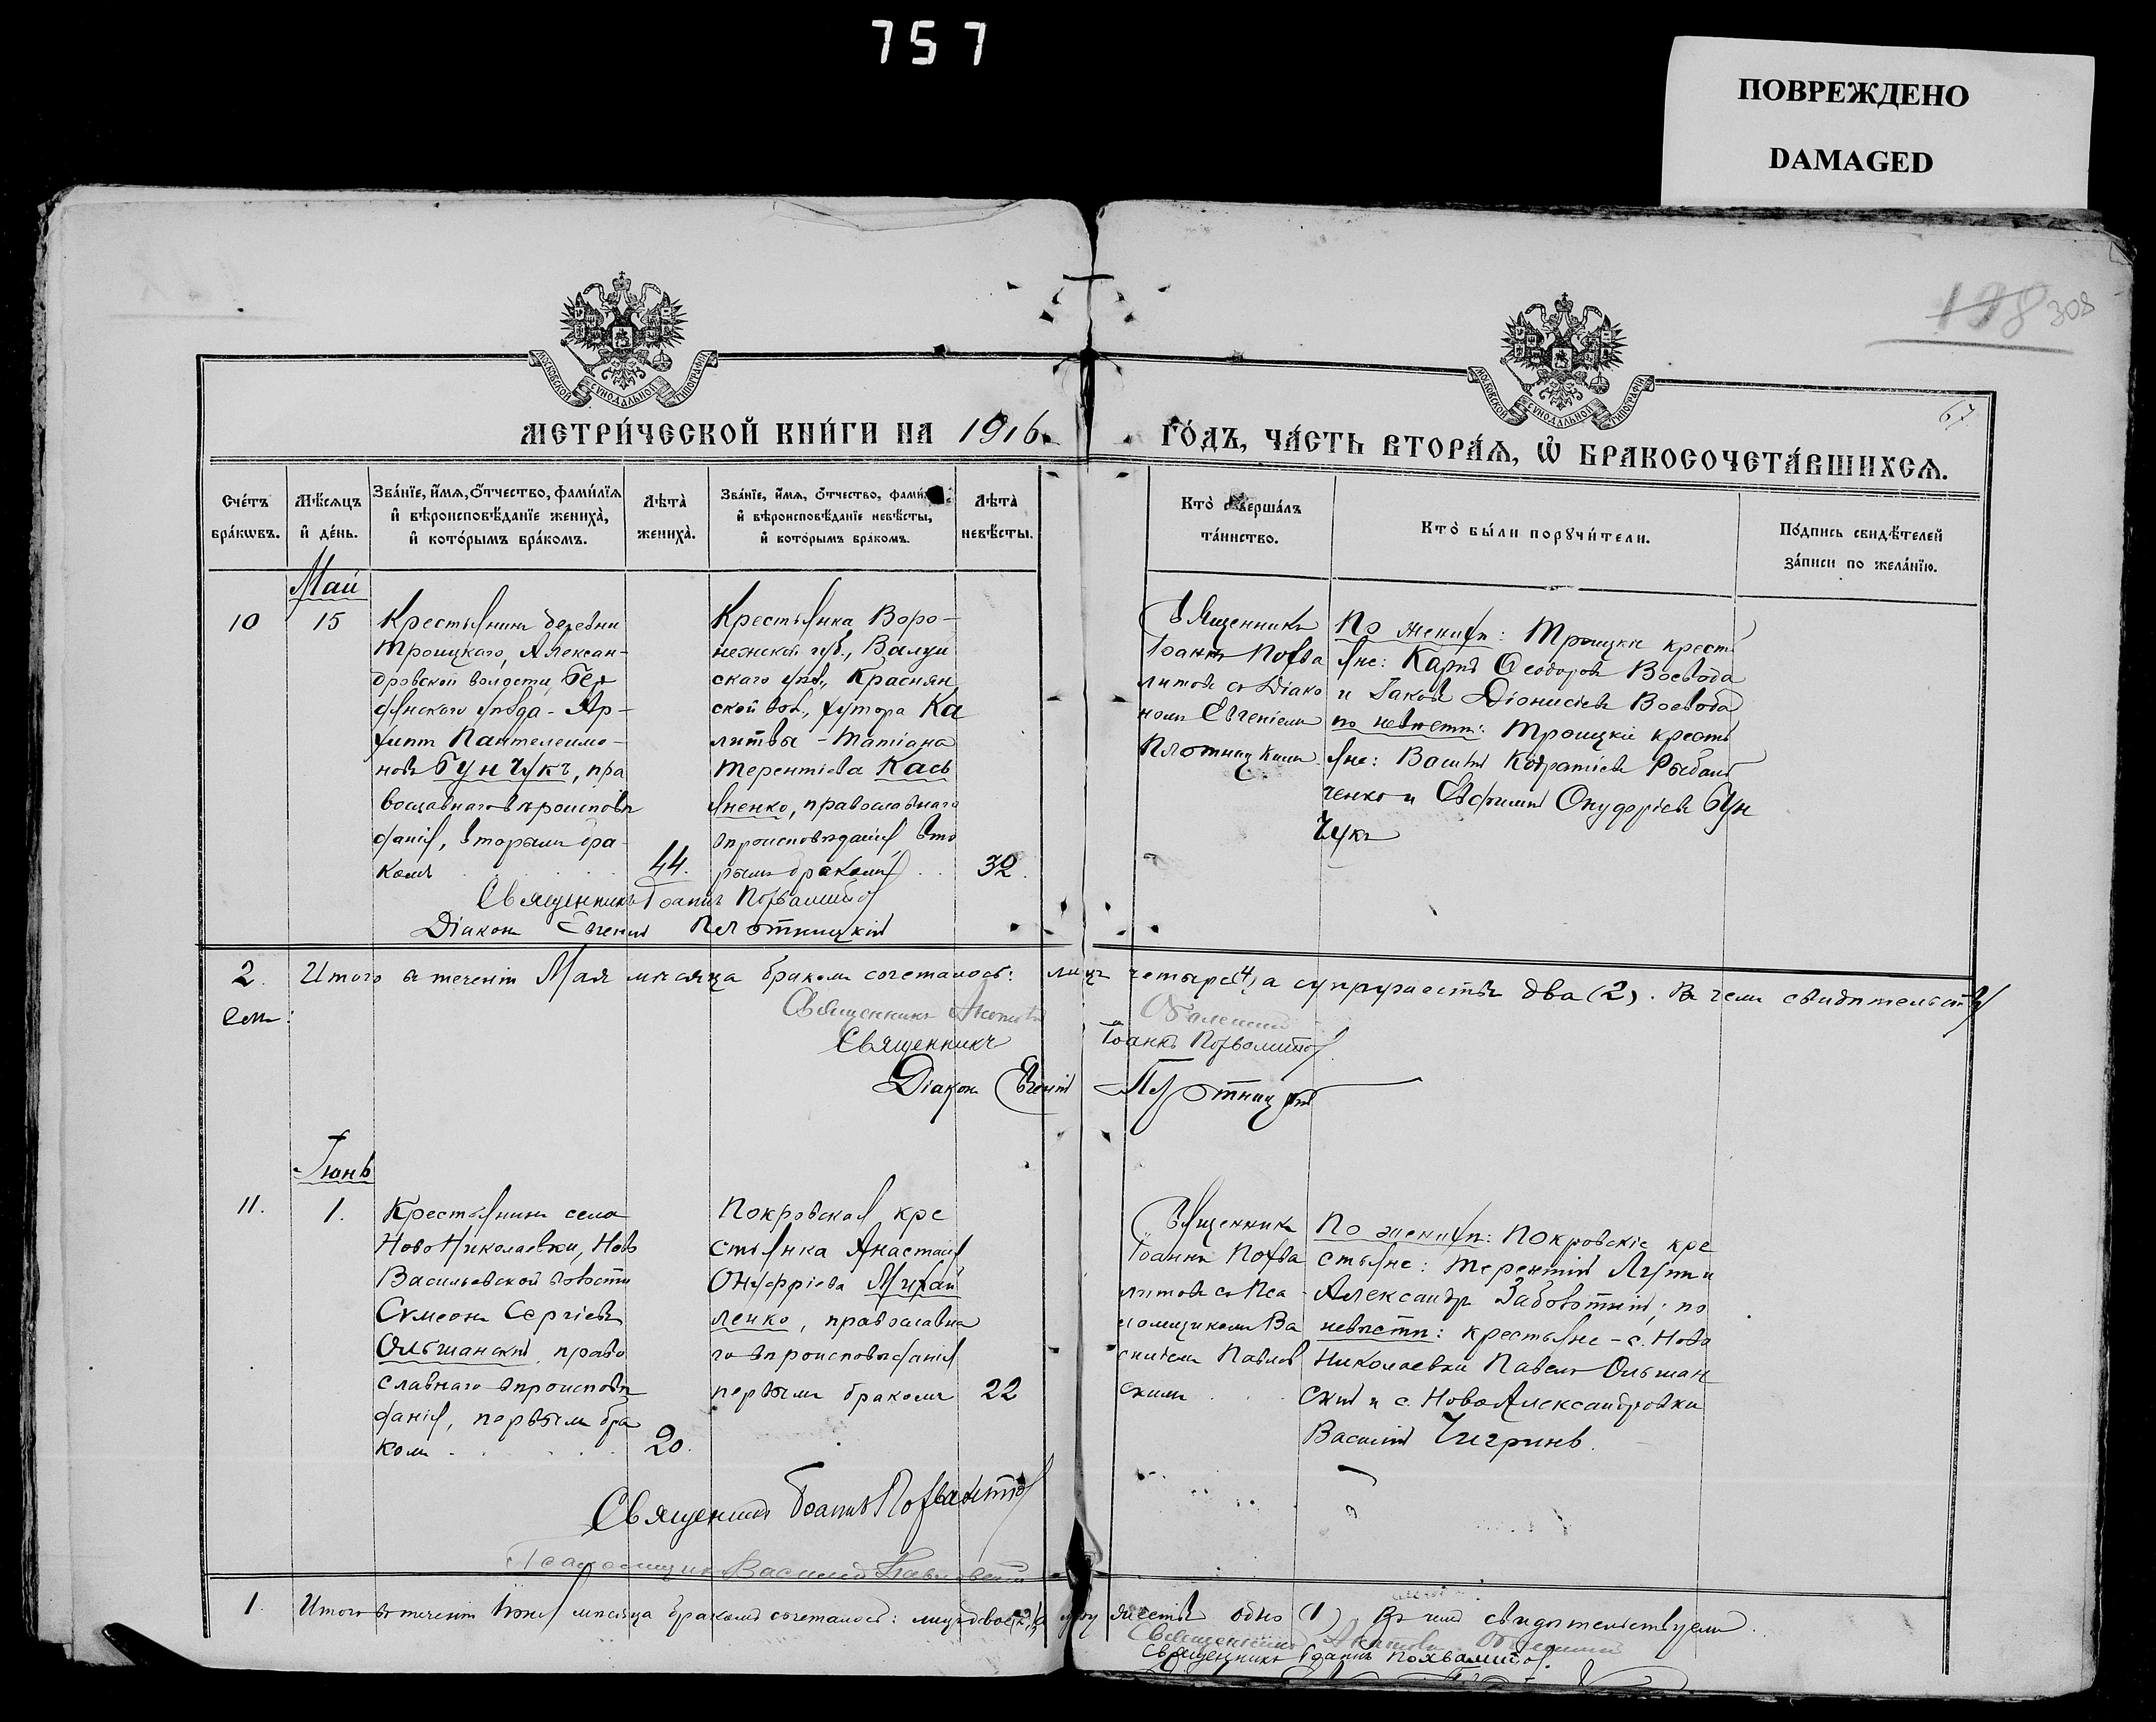 757
ПОВРЕЖДЕНО
DAMAGED
198 308
67
МОСКОВСКОЙ СѴНОДАЛЬНОЙ ТИПОГРАФІИ
МОСКОВСКОЙ СѴНОДАЛЬНОЙ ТИПОГРАФІИ
МЕТРИ́ЧЕСКОЙ КНИ́ГИ НА 1916
ГО́ДЪ, ЧА́СТЬ ВТОРА́Ѧ, Ѡ҆ БРАКОСОЧЕТА́ВШИХСѦ.
Сче́тъ бра́кѡвъ.
Мѣ́сяцъ и҆ де́нь.
Зва́нїе, и҆́мѧ, ѻ҆́тчество, фами́лїѧ
и҆ вѣроисповѣ́данїе жениха̀,
и҆ кото́рымъ бра́комъ.
Лѣта̀ жениха̀.
Зва́нїе, и҆́мѧ, ѻ҆́тчество, фами́
и҆ вѣроисповѣ́данїе невѣ́сты,
и҆ кото́рымъ бра́комъ.
Лѣта̀ невѣ́сты.
Кто̀ соверша́лъ та́инство.
Кто̀ бы́ли порꙋчи́тели.
По́дпись свидѣ́телей
за́писи по жела́нїю.
Май
10
15
Крестьянинъ деревни
Троицкаго, Алексан-
дровской волости, Бер
дянскаго уѣзда - Ар-
хипъ Пантелеимо-
новъ Бунчукъ, пра
вославнаго вѣроисповѣ
данія, вторымъ бра-
комъ
44.
Крестьянка Воро-
нежской губ., Валуй
скаго уѣз., Краснян
ской вол., хутора Ка
литвы - Татіана
Терентіева Кась
яненко, православнаго
вѣроисповѣданія, вто
рымъ бракомъ
32.
Священникъ
Іоаннъ Похва
литовъ съ Діако
номъ Евгеніемъ
Плотницкимъ
По женихѣ: Троицкіе кресть
яне: Карпъ Ѳеодоровъ Воевода
и Іаковъ Діонисіевъ Воевода
по невѣстѣ: Троицкіе кресть
яне: Василій Кодратіевъ Рыбал
ченко и Евфимій Онуфріевъ Бун
чукъ
Священникъ Іоаннъ Похвалитовъ
Діаконъ Евгеній Плотницкій
2.
Итого въ теченіи Мая мѣсяца бракомъ сочеталось: лицъ четыре (4), а супружествъ два (2). Въ чемъ свидѣтельству
емъ:
Священникъ
Священникъ Іоаннъ Похвалитовъ
Діаконъ Евгеній Плотницкій
Іюнь
11.
1.
Крестьянинъ села
Ново Николаевки, Ново
Васильевской волости
Сумеонъ Сергіевъ
Ольшанскій, право
славнаго вѣроисповѣ
данія, первымъ бра
комъ
20.
Покровская кре
стьянка Анастасія
Онуфріева Михай
ленко, православна
го вѣроисповѣданія
первымъ бракомъ
22
Священникъ
Іоаннъ Похва
литовъ съ Пса
ломщикомъ Ва
силіемъ Павлов
скимъ
По женихѣ: Покровскіе кре
стьяне: Терентій Лу и
Александръ Заболотній; по
невѣстѣ: крестьяне - с. Ново
Николаевки Павелъ Ольшан
скій и с. Ново Александровки
Василій Чигринъ.
Священникъ Іоаннъ Похвалитовъ
Псаломщикъ Василій Павловскій
1.
Итого въ теченіи Іюня мѣсяца бракомъ сочеталось: лицъ двое (2), а супружество одно (1) Въ чемъ свидѣтельствуемъ.
Священникъ
Священникъ Іоаннъ Похвалитовъ.